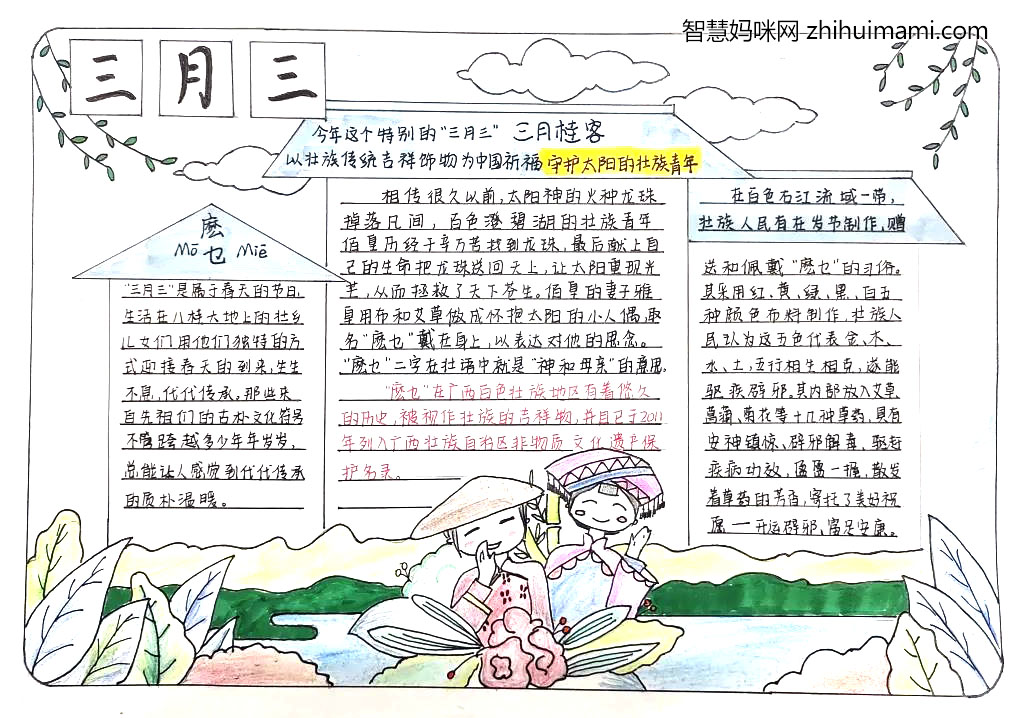 智慧妈咪网 zhihuimami.com
三月三
今年这个特别的“三月三” 三月桂客
以壮族传统吉祥饰物为中国祈福 守护太阳的壮族青年
麽乜
Mō Miē
“三月三”是属于春天的节日,
生活在八桂大地上的壮乡
儿女们用他们独特的方
式迎接春天的到来,生生
不息,代代传承。那些来
自先祖们的古朴文化符号
不管跨越多少年年岁岁,
总能让人感觉到代代传承
的质朴温暖。
相传很久以前,太阳神的火种龙珠
掉落凡间,百色澄碧湖的壮族青年
佰皇历经千辛万苦找到龙珠,最后献上自
己的生命把龙珠送回天上,让太阳重现光
芒,从而拯救了天下苍生。佰皇的妻子雅
皇用布和艾草做成怀抱太阳的小人偶,取
名“麽乜”戴在身上,以表达对他的思念。
“麽乜”二字在壮语中就是“神和母亲”的意思.
“麽乜”在广西百色壮族地区有着悠久
的历史,被视作壮族的吉祥物,并且已于2011
年列入广西壮族自治区非物质文化遗产保
护名录。
在百色右江流域一带,
壮族人民有在岁节制作,赠
送和佩戴“麽乜”的习俗。
其采用红、黄、绿、黑、白五
种颜色布料制作,壮族人
民认为这五色代表金、木、
水、土,五行相生相克,遂能
驱疾辟邪。其内部放入艾草
菖蒲、菊花等十几种草药,具有
安神镇惊、辟邪解毒、驱赶
疾病功效,盈盈一握,散发
着草药的芳香,寄托了美好祝
愿——开运辟邪,富足安康。